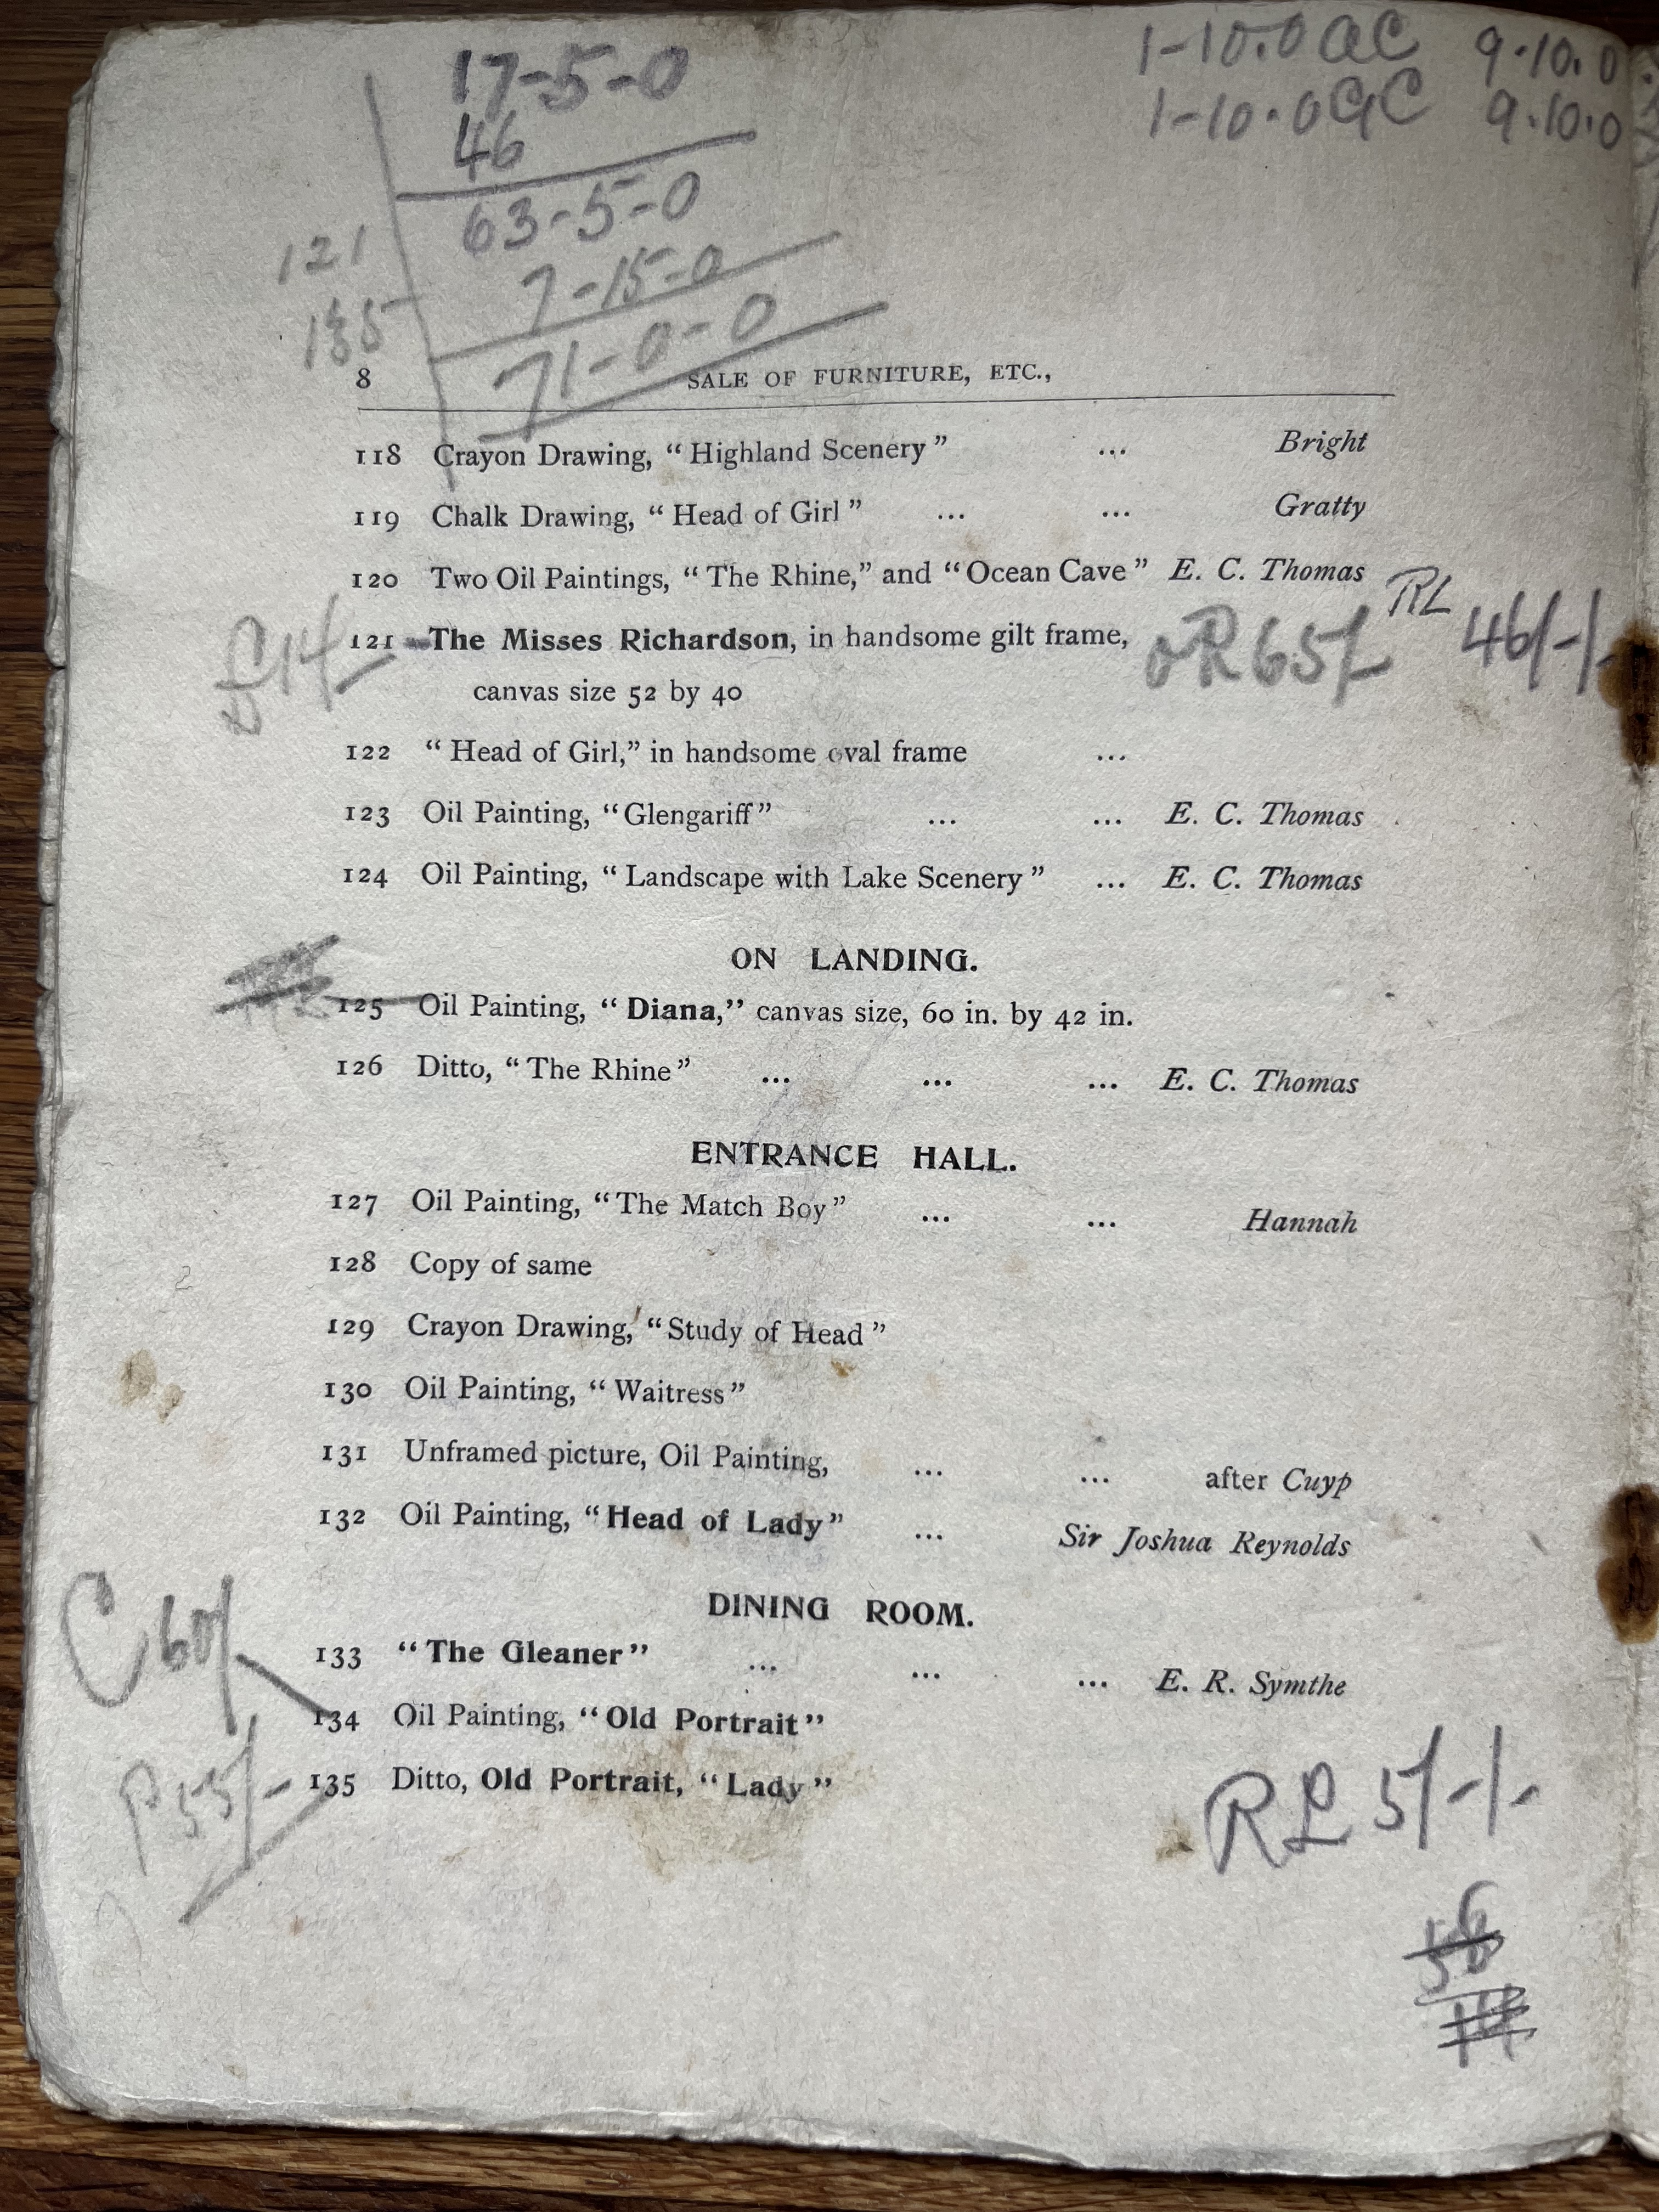 17-5-0
46
63-5-0
7-15-0
71-0-0
121
135
1-10.0 9.10.0
1-10.0 9.10.0
8 SALE OF FURNITURE, ETC.,
118 Crayon Drawing, “Highland Scenery” ... Bright
119 Chalk Drawing, “Head of Girl” ... ... Gratty
120 Two Oil Paintings, “The Rhine,” and “Ocean Cave” E. C. Thomas
£14/ 121 The Misses Richardson, in handsome gilt frame, 65/- RL 46/-/-
canvas size 52 by 40
122 “Head of Girl,” in handsome oval frame ...
123 Oil Painting, “Glengariff” ... ... E. C. Thomas
124 Oil Painting, “Landscape with Lake Scenery” ... E. C. Thomas
ON LANDING.
125 Oil Painting, “Diana,” canvas size, 60 in. by 42 in.
126 Ditto, “The Rhine” ... ... ... E. C. Thomas
ENTRANCE HALL.
127 Oil Painting, “The Match Boy” ... ... Hannah
128 Copy of same
129 Crayon Drawing, “Study of Head”
130 Oil Painting, “Waitress”
131 Unframed picture, Oil Painting, ... ... after Cuyp
132 Oil Painting, “Head of Lady” ... Sir Joshua Reynolds
DINING ROOM.
133 “The Gleaner” ... ... ... E. R. Symthe
C 60/ 134 Oil Painting, “Old Portrait”
P 55/- 135 Ditto, Old Portrait, “Lady” R£ 5/-/-